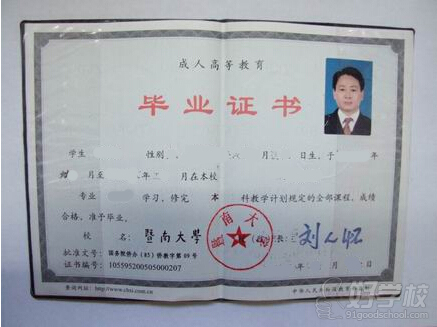 成人高等教育
毕业证书
学生 性别 月 日生,于 年
月至 年 月在本校
专业 学习,修完 本 科教学计划规定的全部课程,成绩
合格,准予毕业。
校 名:暨南大學
批准文号:国务院侨办(85)侨教字第09号
证书编号:105595200505000207
暨南大
查询网址:http://www.chsi.com.cn
中华人民共和国教育部
好学校
91goodschool.com